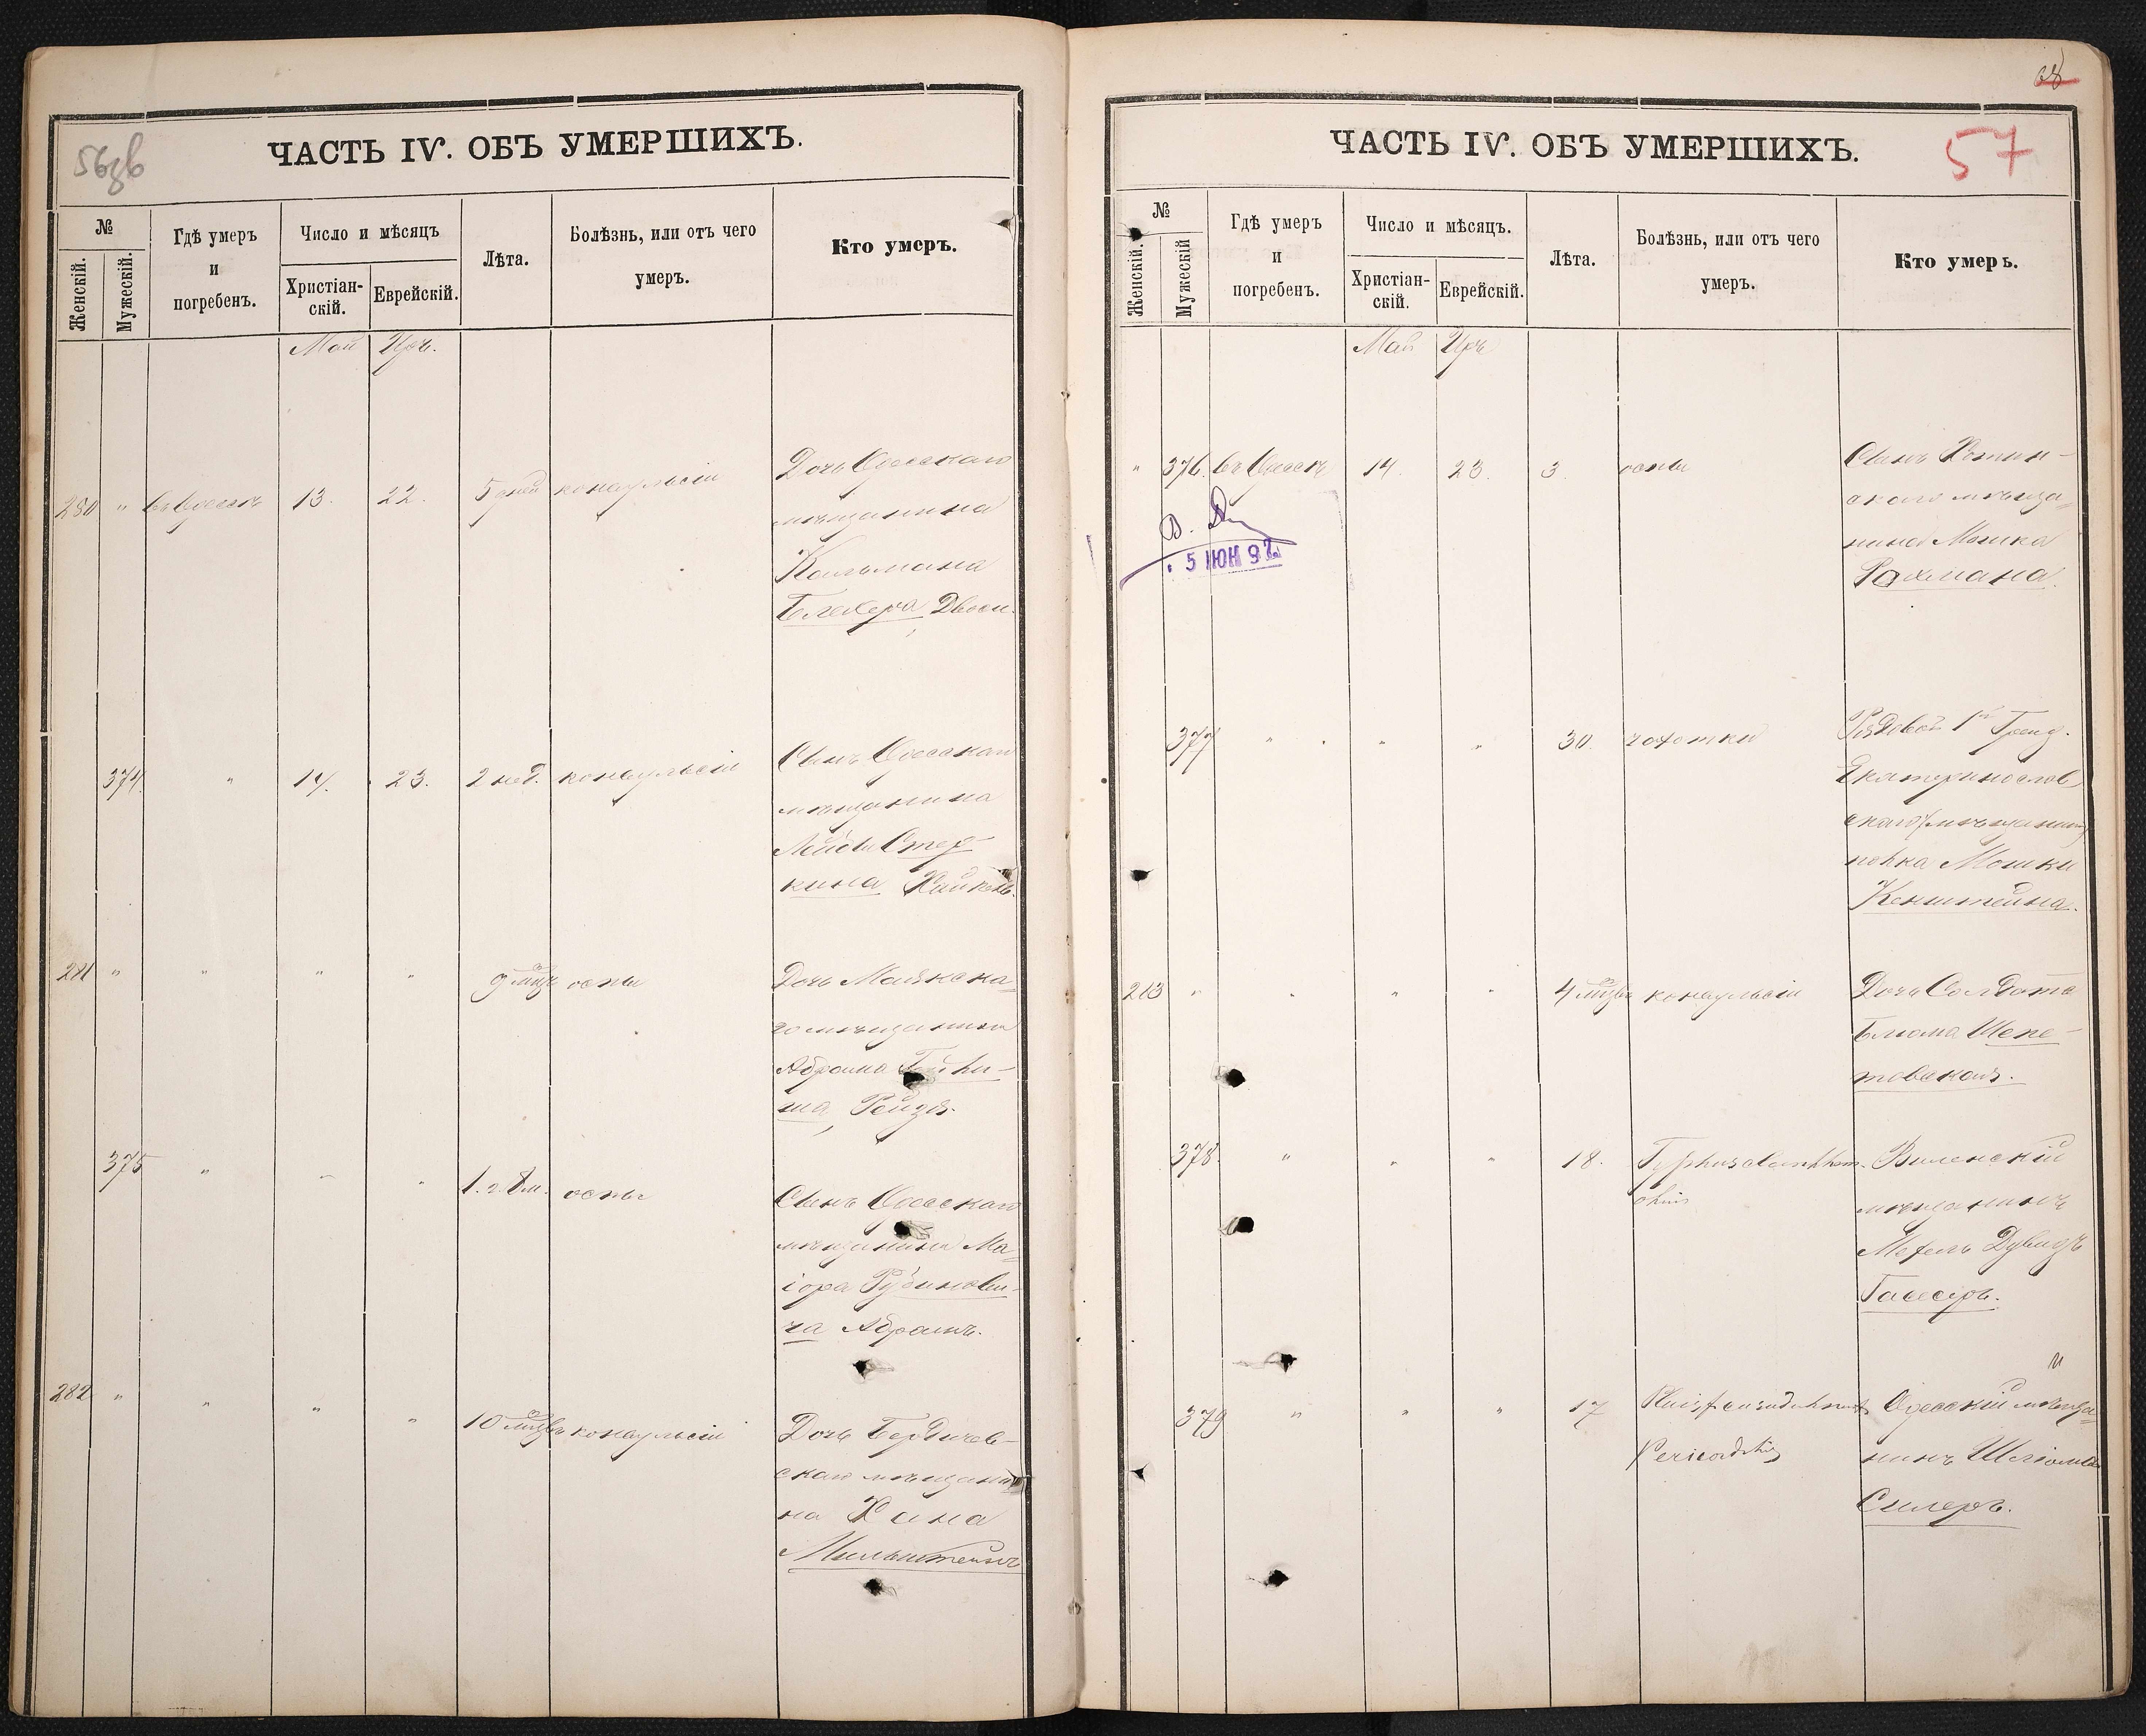 56зв
ЧАСТЬ IV. ОБЪ УМЕРШИХЪ.
№
Женскій.
Мужескій.
Гдѣ умеръ
и
погребенъ.
Число и мѣсяцъ
Христіан-
скій.
Еврейскій.
Лѣта.
Болѣзнь, или отъ чего
умеръ.
Кто умеръ.
Май Иръ.
280 " въ Одессѣ 13. 22. 5 дней конвульсіи
Дочь Одесскаго
мѣщанина
Кальмана
Блехера Двося.
374. " 14. 23. 2 нед. конвульсіи
Сынъ Одесскаго
мѣщанина
Лейбы
кина
281 " " " " 9 мцъ оспы
Дочь Маякска-
го мѣщанина
Абрама
Рейзя.
375 " " " 1. г. 8 м. оспы
Сынъ Одесскаго
мѣщанина Ма-
іора Рубинови-
ча Абрамъ.
282 " " " " 10 мцвъ конвульсіи
Дочь Бердичев-
скаго мѣщани-
на Хана
Мильштейнъ
68
57
ЧАСТЬ IV. ОБЪ УМЕРШИХЪ.
№
Женскій.
Мужескій
Гдѣ умеръ
и
погребенъ.
Число и мѣсяцъ.
Христіан-
скій.
Еврейскій.
Лѣта.
Болѣзнь, или отъ чего
умеръ.
Кто умеръ.
Май Иръ
" 376. въ Одессѣ 14. 23. 3. оспы
Сынъ Хотин-
скаго мѣща-
нина Мошка
Рахмана.
5 ИЮН 92
377 " " " 30. чахотки
Рядовой 1го Грен.
Екатеринослав
скаго
полка Мошки
Кенштейна.
283 " " " " 4 мцвъ конвульсіи
Дочь Солдата
Блюма Шепе-
товская.
378. " " " 18. Typhus
Виленскій
мѣщанинъ
Дувидъ
Гасеръ.
379 " " " 17
Pericarditis
Одесскій мѣща-
нинъ Шліома
Силеръ.